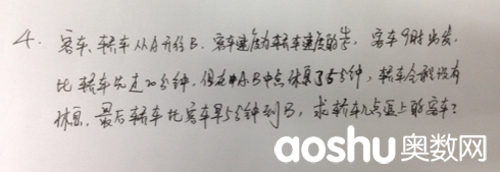 4. 客车、轿车从A开往B.客车速度为轿车速度的,客车9时出发.
比轿车先走20分钟,但在AB中点休息了5分钟,轿车全程没有
休息.最后轿车比客车早5分钟到B,求轿车几点追上的客车?
aoshu奥数网